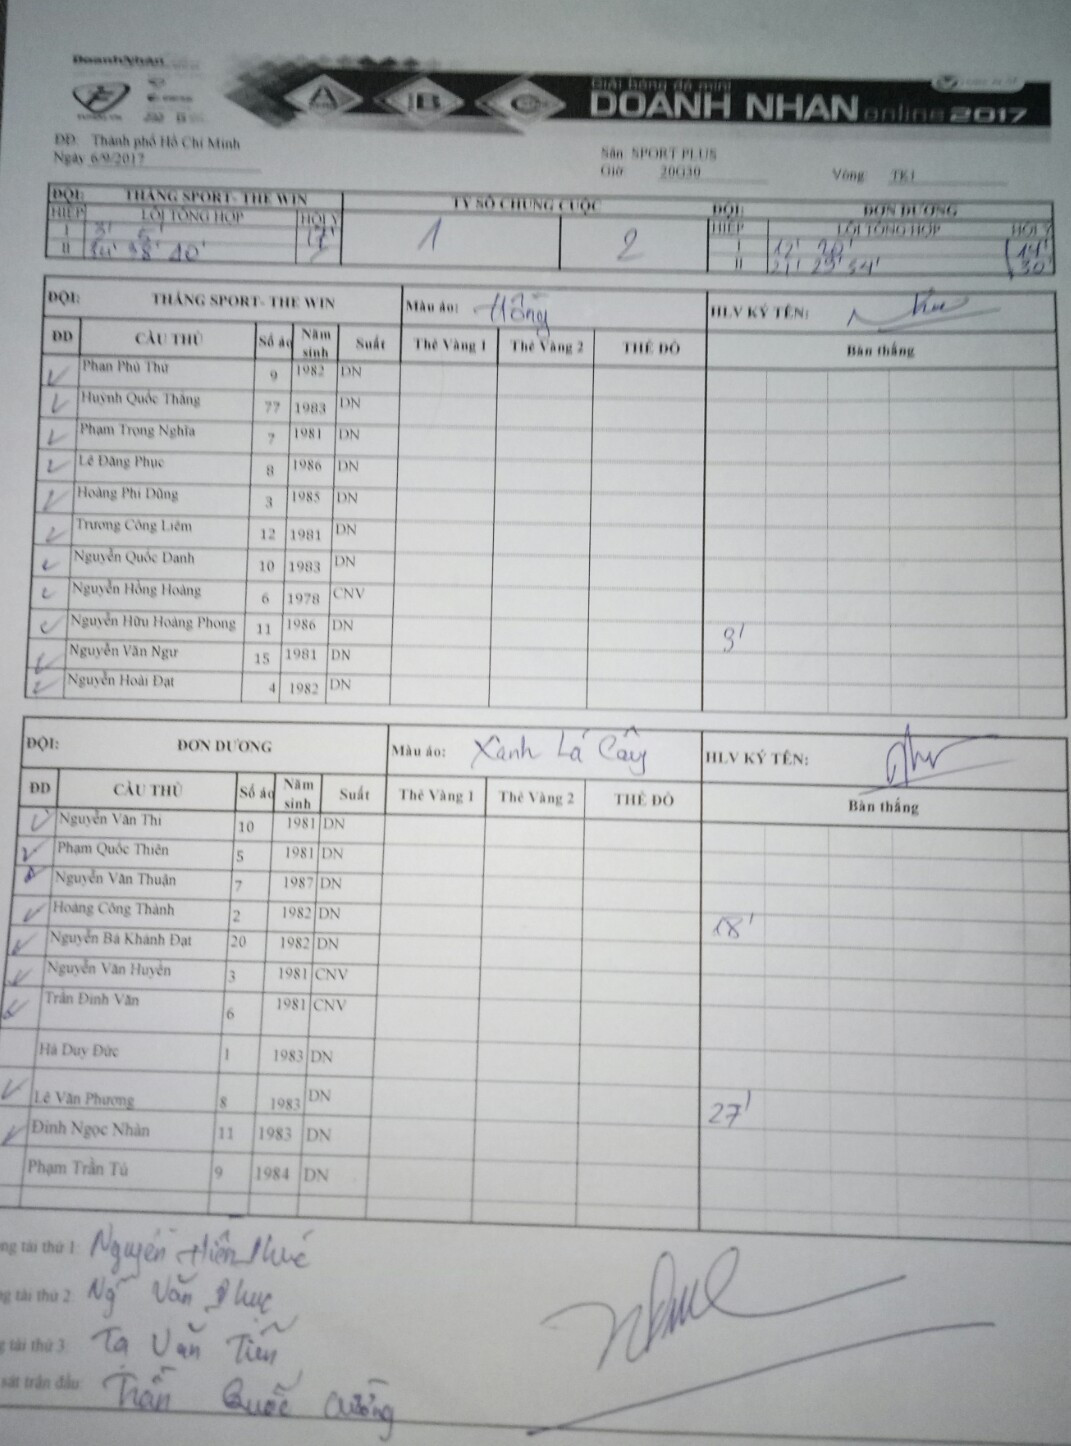 DoanhNhân
A B C
Giải bóng đá mini
DOANH NHAN online 2017
ĐĐ: Thành phố Hồ Chí Minh
Ngày 6/9/2017
Sân SPORT PLUS
Giờ 20G30
Vòng TK1
ĐỘI: THẮNG SPORT- THE WIN TỶ SỐ CHUNG CUỘC ĐỘI: ĐƠN DƯƠNG
HIỆP LỖI TỔNG HỢP HỘI Ý 1 2 HIỆP LỖI TỔNG HỢP HỘI Ý
I 3' 5' 17' I 12' 20' 14'
II 38' 40' II 21' 29' 34' 30'
ĐỘI: THẮNG SPORT- THE WIN Màu áo: Hồng HLV KÝ TÊN:
ĐD CẦU THỦ Số áo Năm sinh Suất Thẻ Vàng 1 Thẻ Vàng 2 THẺ ĐỎ Bàn thắng
Phan Phú Thứ 9 1982 DN
Huỳnh Quốc Thắng 77 1983 DN
Phạm Trọng Nghĩa 7 1981 DN
Lê Đăng Phục 8 1986 DN
Hoàng Phi Dũng 3 1985 DN
Trương Công Liêm 12 1981 DN
Nguyễn Quốc Danh 10 1983 DN
Nguyễn Hồng Hoàng 6 1978 CNV
Nguyễn Hữu Hoàng Phong 11 1986 DN 9'
Nguyễn Văn Ngư 15 1981 DN
Nguyễn Hoài Đạt 4 1982 DN
ĐỘI: ĐƠN DƯƠNG Màu áo: Xanh Lá Cây HLV KÝ TÊN:
ĐD CẦU THỦ Số áo Năm sinh Suất Thẻ Vàng 1 Thẻ Vàng 2 THẺ ĐỎ Bàn thắng
Nguyễn Văn Thi 10 1981 DN
Phạm Quốc Thiên 5 1981 DN
Nguyễn Văn Thuận 7 1987 DN
Hoàng Công Thành 2 1982 DN 18'
Nguyễn Bá Khánh Đạt 20 1982 DN
Nguyễn Văn Huyền 3 1981 CNV
Trần Đình Văn 6 1981 CNV
Hà Duy Đức 1 1983 DN
Lê Văn Phương 8 1983 DN 27'
Đinh Ngọc Nhân 11 1983 DN
Phạm Trần Tú 9 1984 DN
tài thứ 1: Nguyễn Hiền Phúc
tài thứ 2: Ng Văn Phục
tài thứ 3: Tạ Văn Tiến
sát trận đấu: Trần Quốc Cường